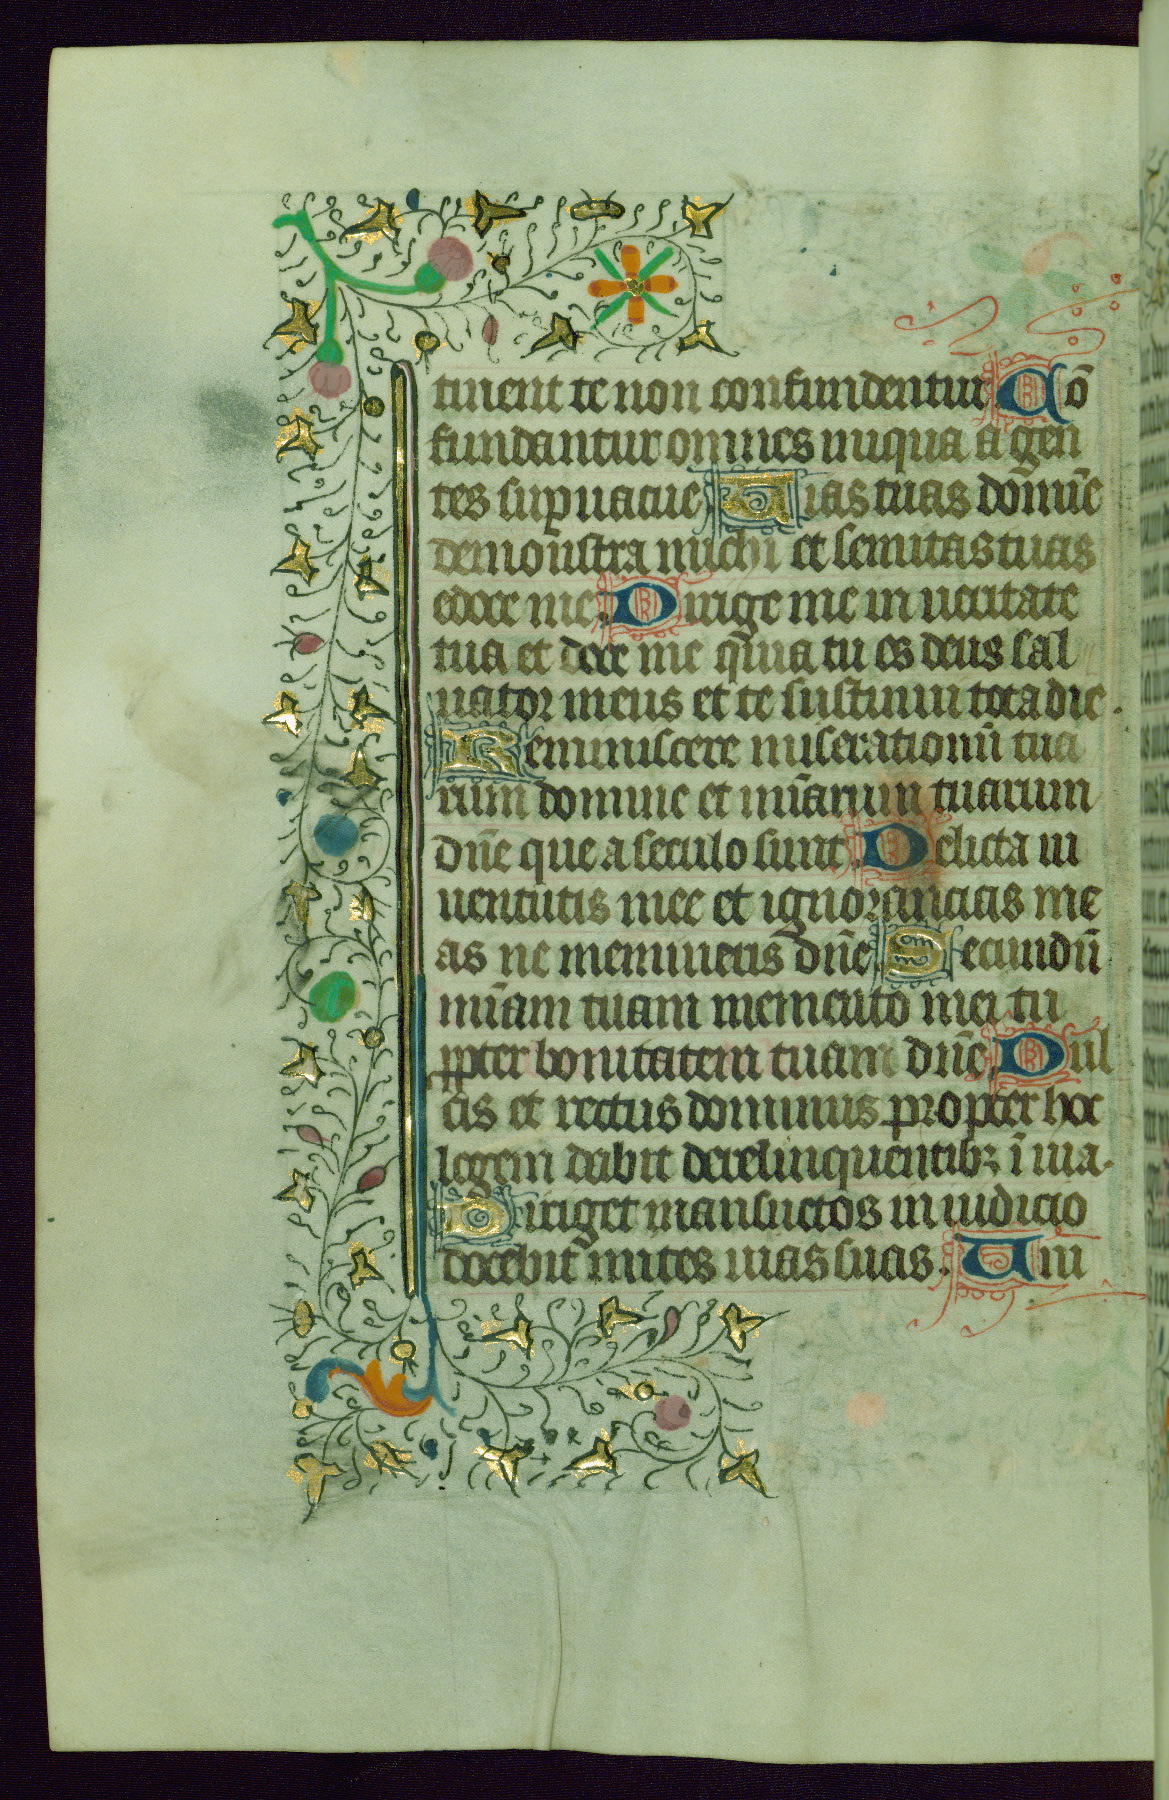 tinent te non confundentur Cō
fundantur omnes iniqua agen
tes sup̱uacue Uias tuas domīe
demonstra michi et semitas tuas
edoce me. Dirige me in ueritate
tua et doce me quia tu es deus sal
uator meus et te sustinui tota die.
Reminiscere miserationū tua
rum domine et mīarum tuarum
dn̄e que a seculo sunt. Delicta iu
uentutis mee et ignorancias me
as ne memineris dn̄e. Secundū
mīam tuam memento mei tu
ꝓpter bonitatem tuam dn̄e. Dul
cis et rectus dominus propter hoc
legem dabit derelinquentibꝫ ī uia.
Diriget mansuetos in iudicio
docebit mites uias suas. Uni